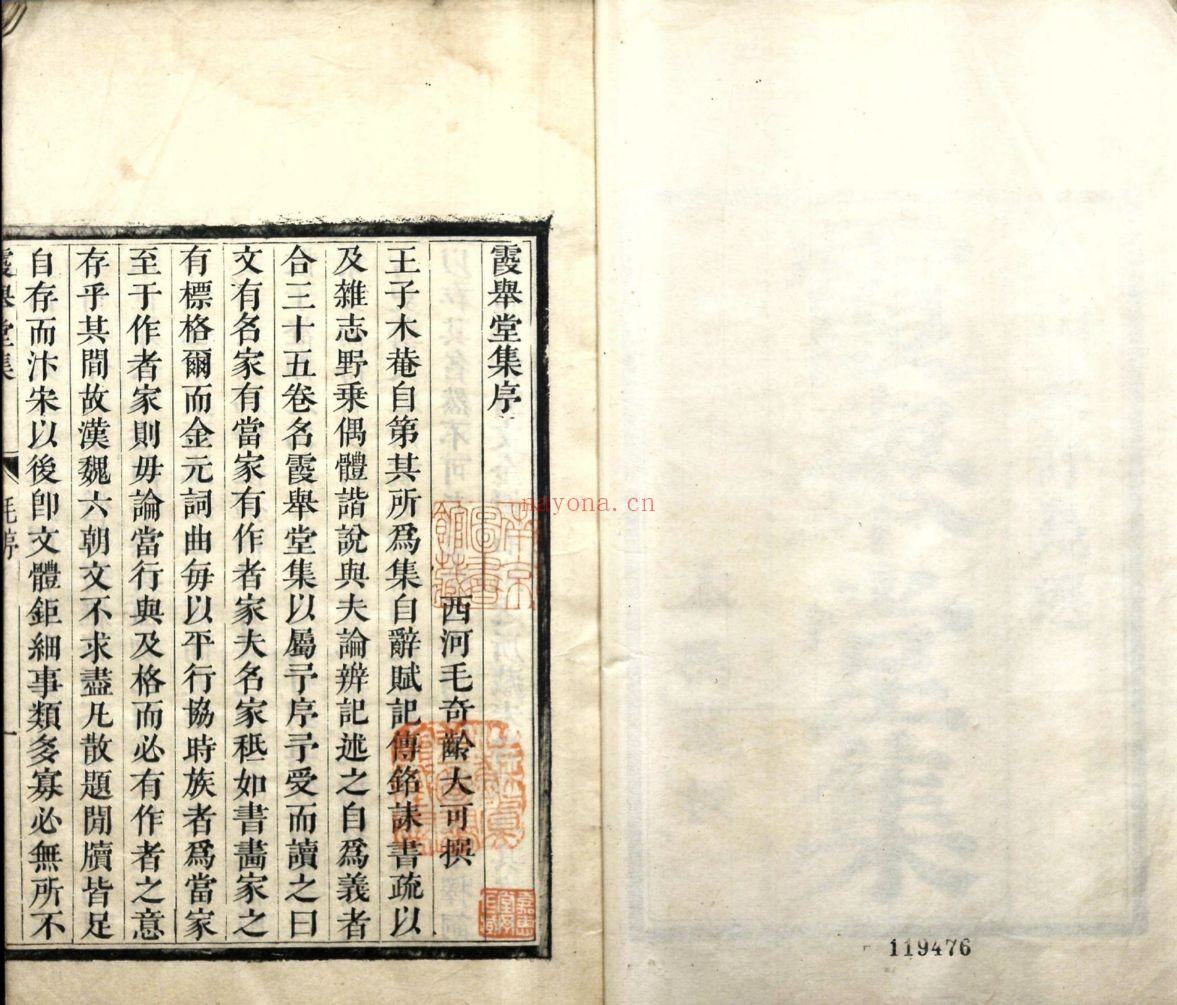 霞舉堂集序
西河毛奇齡大可撰
王子木菴自第其所爲集自辭賦記傳銘誄書疏以
及雑志野乗偶體諧說與夫論辨記述之自爲義者
合三十五卷名霞舉堂集以屬予序予受而讀之曰
文有名家有當家有作者家夫名家秪如書畵家之
有標格爾而金元詞曲毎以平行協時族者爲當家
至于作者家則毋論當行與及格而必有作者之意
存乎其間故漢魏六朝文不求盡凡散題閒牘皆足
自存而汴宋以後卽文體鉅細事類多寡必無所不
霞舉堂集
毛序
一
nayona.cn
119476